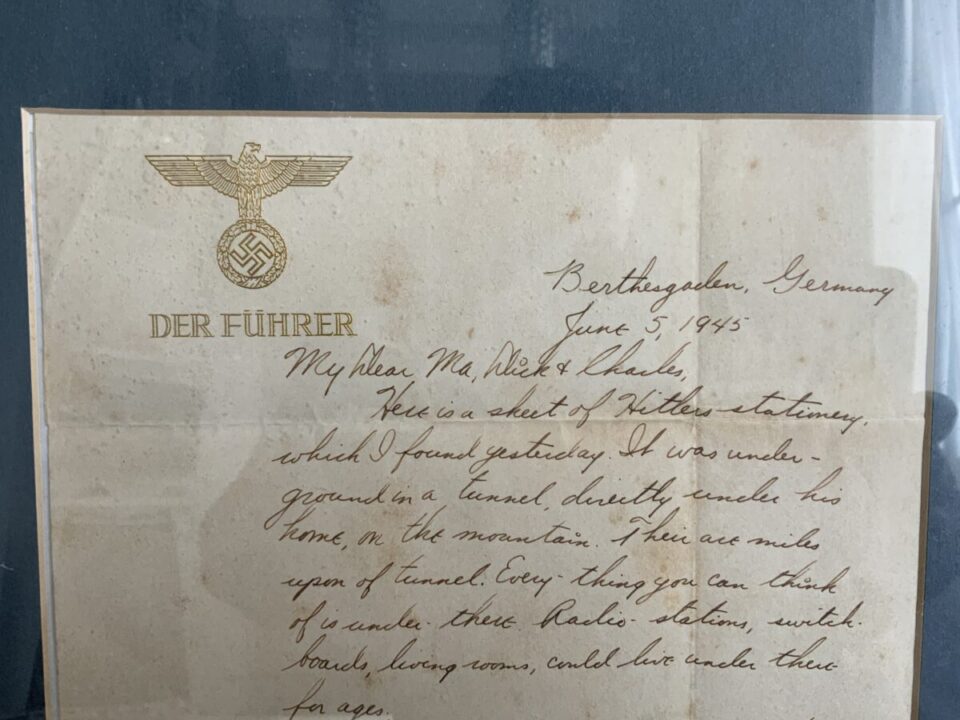 DER FÜHRER
Berthesgaden, Germany
June 5, 1945
My Dear Ma, Dick & Charles,
Here is a sheet of Hitlers stationery,
which I found yesterday. It was under-
ground in a tunnel, directly under his
home, on the mountain. Their are miles
upon of tunnel. Every-thing you can think
of is under-there. Radio-stations, switch-
boards, living rooms, could live under there
for ages.